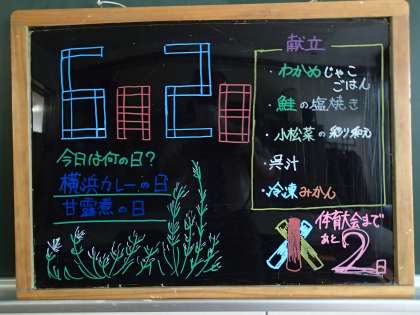 6月2日
今日は何の日?
横浜カレーの日
甘露煮の日
献立
・わかめじゃこ
ごはん
・鮭の塩焼き
・小松菜の彩り和え
・呉汁
・冷凍みかん
体育大会まで
あと2日